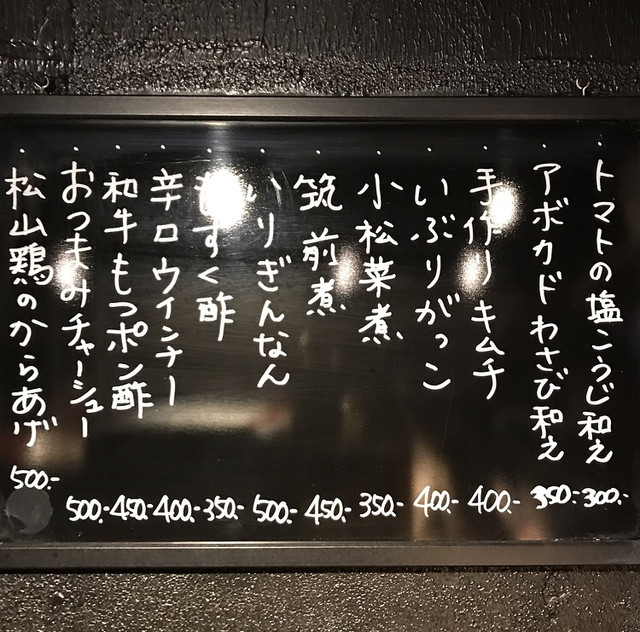 ・トマトの塩こうじ和え 300.-
・アボカドわさび和え 350.-
・手作りキムチ 400.-
・いぶりがっこ 400.-
・小松菜煮 350.-
・筑前煮 450.-
・いりぎんなん 500.-
・もずく酢 350.-
・辛口ウインナー 400.-
・和牛もつポン酢 450.-
・おつまみチャーシュー 500.-
・松山鶏のからあげ 500.-